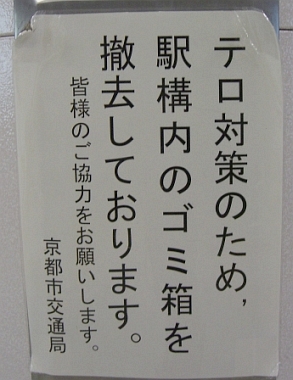 テロ対策のため，
駅構内のゴミ箱を
撤去しております。
皆様のご協力をお願いします。
京都市交通局